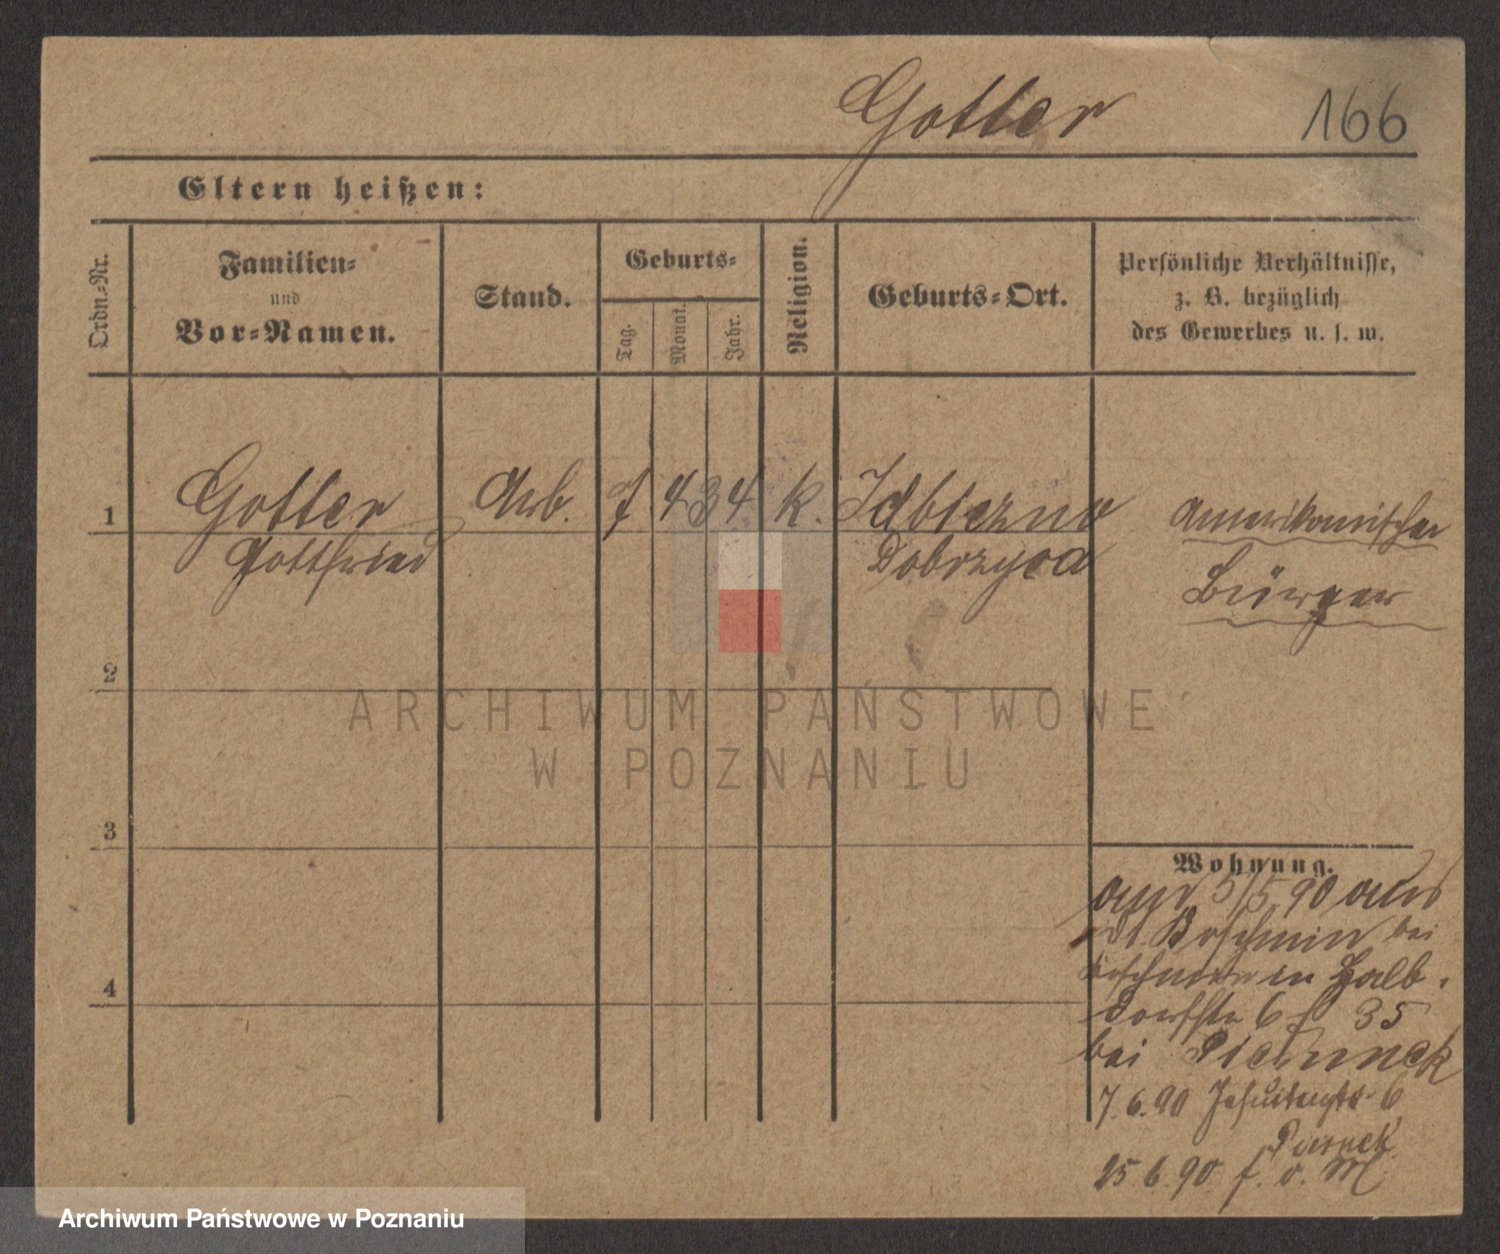 Gotter
166
Eltern heißen:
Ordn.-Nr.
Familien-
und
Vor-Namen.
Stand.
Geburts-
Tag.
Monat.
Jahr.
Religion.
Geburts-Ort.
Persönliche Verhältnisse,
z. B. bezüglich
des Gewerbes u. s. w.
1
Gotter
Gottfried
Arb.
7
4
34
k.
Dobrzyca
Amerikanischer
Bürger
2
ARCHIWUM PAŃSTWOWE
W POZNANIU
3
Wohnung.
5/5 90 aus
bei
in Halb-
dorfstr 6 35
bei
4
7.6.90 Jesuitenstr 6
25.6.90 f. o. M.
Archiwum Państwowe w Poznaniu